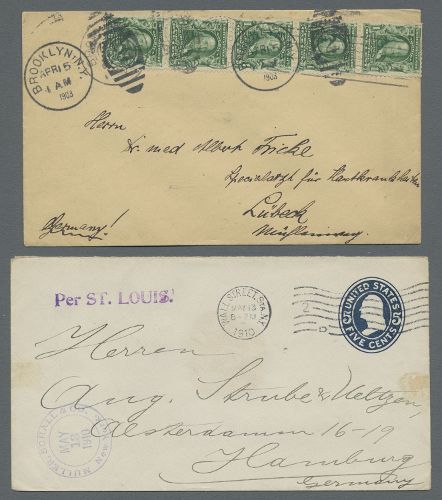 BROOKLYN, N.Y.
APR 15
1 AM
1903
1903
Herrn
Dr. med Albert Fricke
Specialarzt für Hautkrankheiten
Lübeck
Germany!
Per ST. LOUIS.
WALL STREET STA. N.Y.
MAY 13
1910
2
D
UNITED STATES
FIVE CENTS
Herren
Aug. Strube & Ueltzen,
Alsterdamm 16-19
Hamburg
Germany
MULLER, SCHALL & CO.
MAY
13
1910